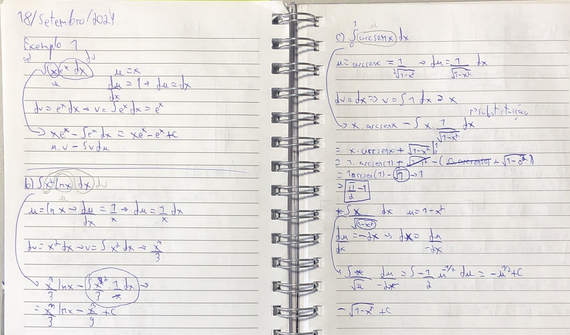 18/Setembro/2024
Exemplo 1
a) ∫xe^x dx u = x
du/dx = 1 → du = dx
dv = e^x dx → v = ∫e^x dx = e^x
→ xe^x - ∫e^x dx = xe^x - e^x + c
u.v - ∫vdu
b) ∫x² ln x dx
u = ln x → du/dx = 1/x → du = 1/x dx
dv = x² dx → v = ∫x² dx → x³/3
→ x³/3 ln x - ∫x³/3 1/x dx →
= x³/3 ln x - x³/9 + c
c) ∫ arcsenx dx
u = arcsenx = 1/√1-x² → du = 1/√1-x² dx
dv = dx → v = ∫1 dx = x
→ x. arcsenx - ∫x. 1/√1-x² dx
= x. arcsenx + √1-x²
= 1. arcsen(1) + √1-1² - (0. arcsen(0) + √1-0²)
= 1arcsen(1) - √1 → 1
= π/2 - 1
* ∫x/√1-x² dx u = 1-x²
du/dx = -2x → dx = du/-2x
→ ∫x/√u du/-2x = ∫-1/2 u^-1/2 du = -u^1/2 + c
-√1-x² + c